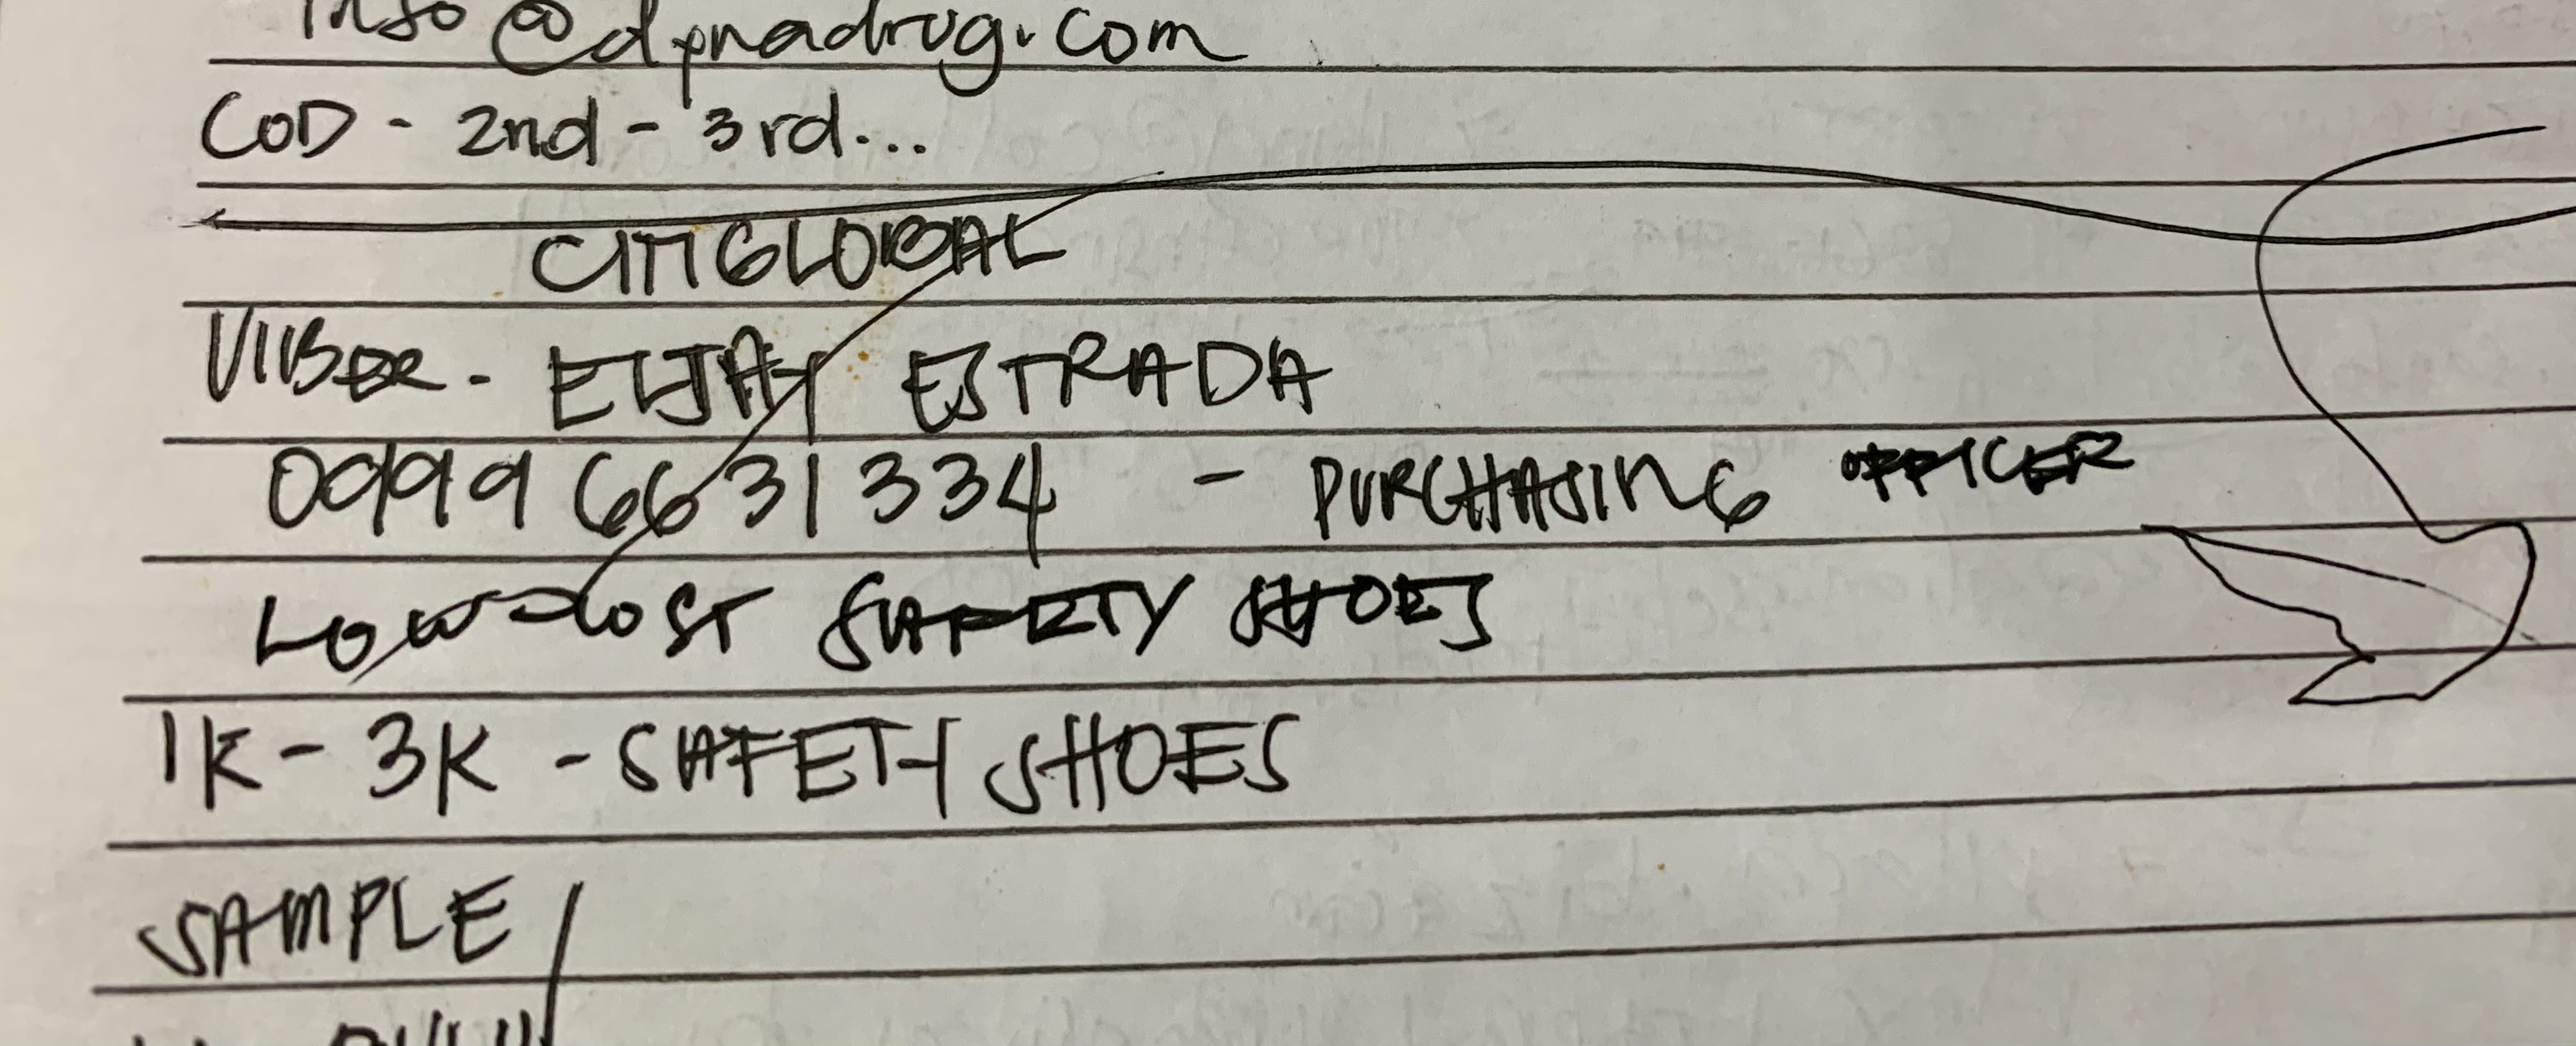 info@dynadrug.com
COD - 2nd - 3rd...
VIBER - ELJAY ESTRADA
0999 6631334 - PURCHASING OFFICER
LOW-COST SAFETY SHOES
1K - 3K - SAFETY SHOES
SAMPLE